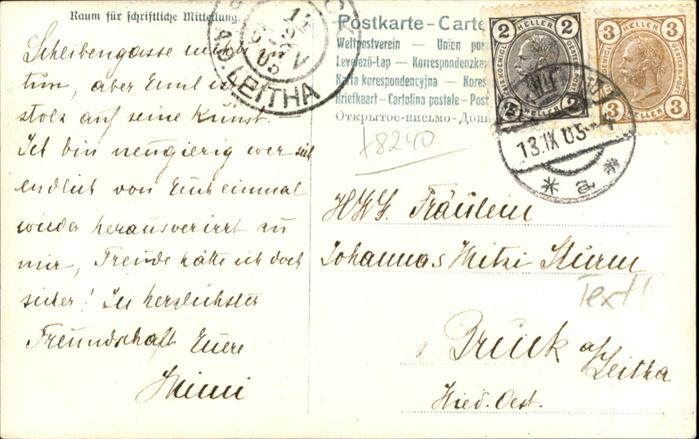 Raum für schriftliche Mitteilung.
Scheibengasse
tun, aber Emil ist
stolz auf seine Kunst.
Ich bin neugierig wer sich
endlich von Euch einmal
wieder herausverirrt zu
mir, Freude hätte ich doch
sicher! In herzlichster
Freundschaft Euere
Mimi
Postkarte - Carte
Weltpostverein — Union pos
Levelező-Lap — Korrespondenzka
Karta korespondencyjna — Kores
Briefkaart - Cartolina postale - Post
Открытое-письмо - Допи
2 HELLER 2
2 HELLER 2
3 HELLER 3
3 HELLER 3
LEITHA
13.IX.05
+8240
Fräulein
Johanna &amp; Mitzi Sturm
Text!
Bruck a/
Leitha
Nied. Oest.